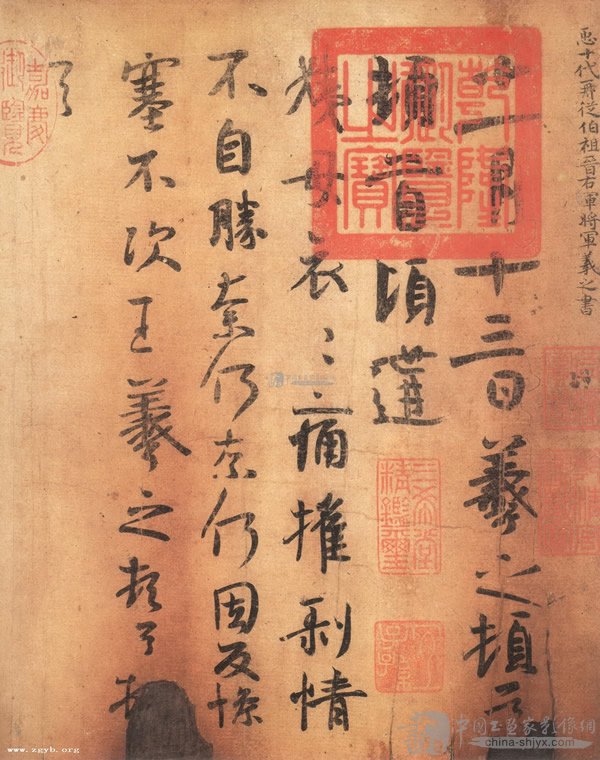 臣十代再從伯祖晉右軍將軍羲之書
十一月十三日羲之頓首
頓首頃遘
姨母哀〻痛摧剝情
不自勝奈何奈何因反慘
塞不次王羲之頓首頓
首
乾隆御覽之寶
三希堂精鑑璽
嘉慶御覽
www.zgyb.org
china-shjyx.com